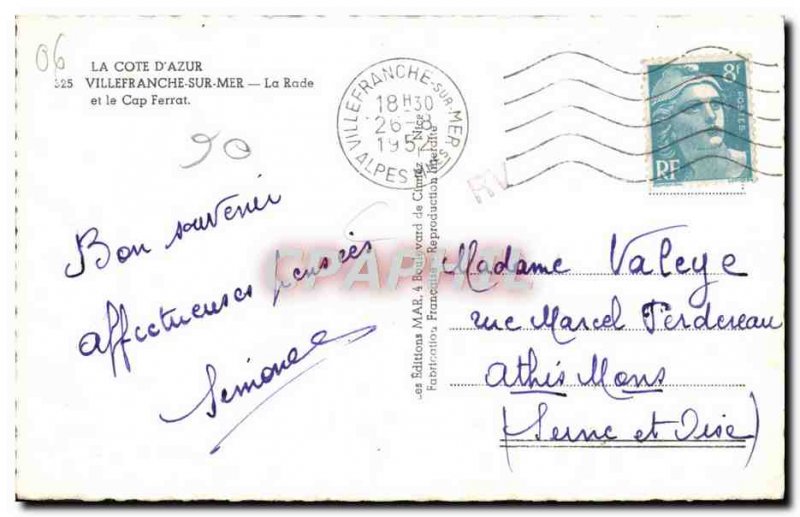 06
LA COTE D'AZUR
325 VILLEFRANCHE-SUR-MER — La Rade
et le Cap Ferrat.
90
VILLEFRANCHE-SUR-MER
18H30
26-8
1952
ALPES Mmes
8F
POSTES
RF
RV
Bon souvenir
affectueuses pensées
Simone
Les Éditions MAR, 4 Boulevard de Cimiez — Nice
Fabrication Française - Reproduction Interdite
Madame Valeye
rue Marcel Perdereau
Athis Mons
(Seine et Oise)
CPAPHIL